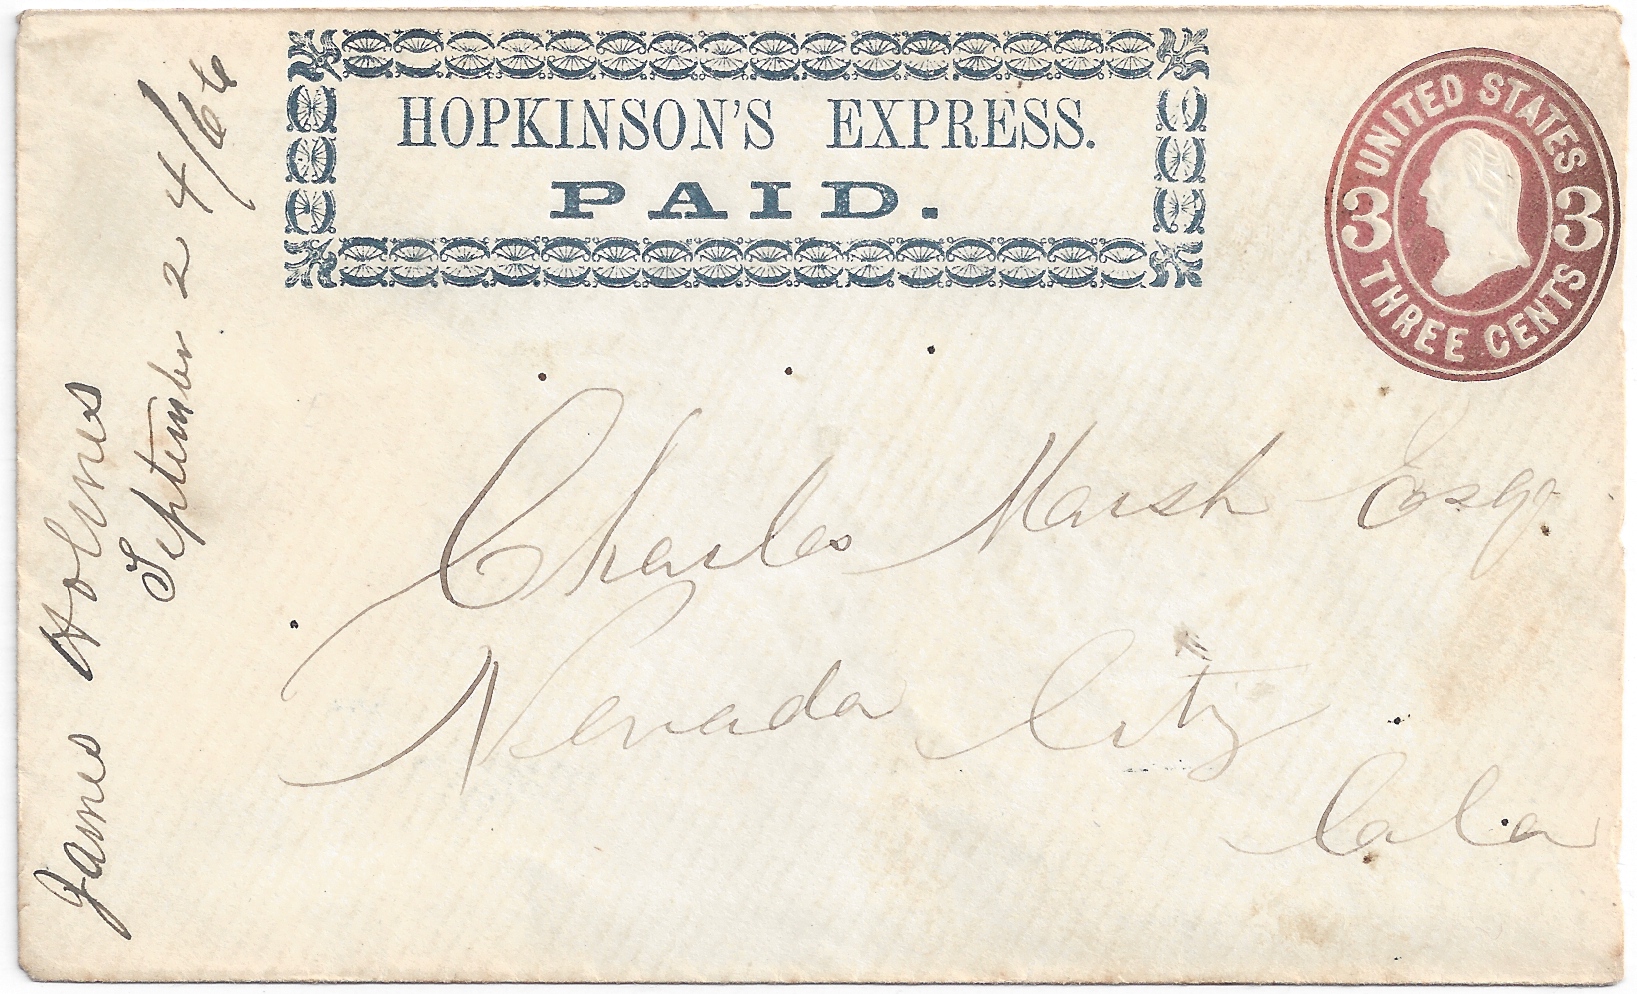 HOPKINSON'S EXPRESS.
PAID.
UNITED STATES
3 3
THREE CENTS
Charles Marsh Esqr
Nevada City
Cala
James Holmes
September 24/66